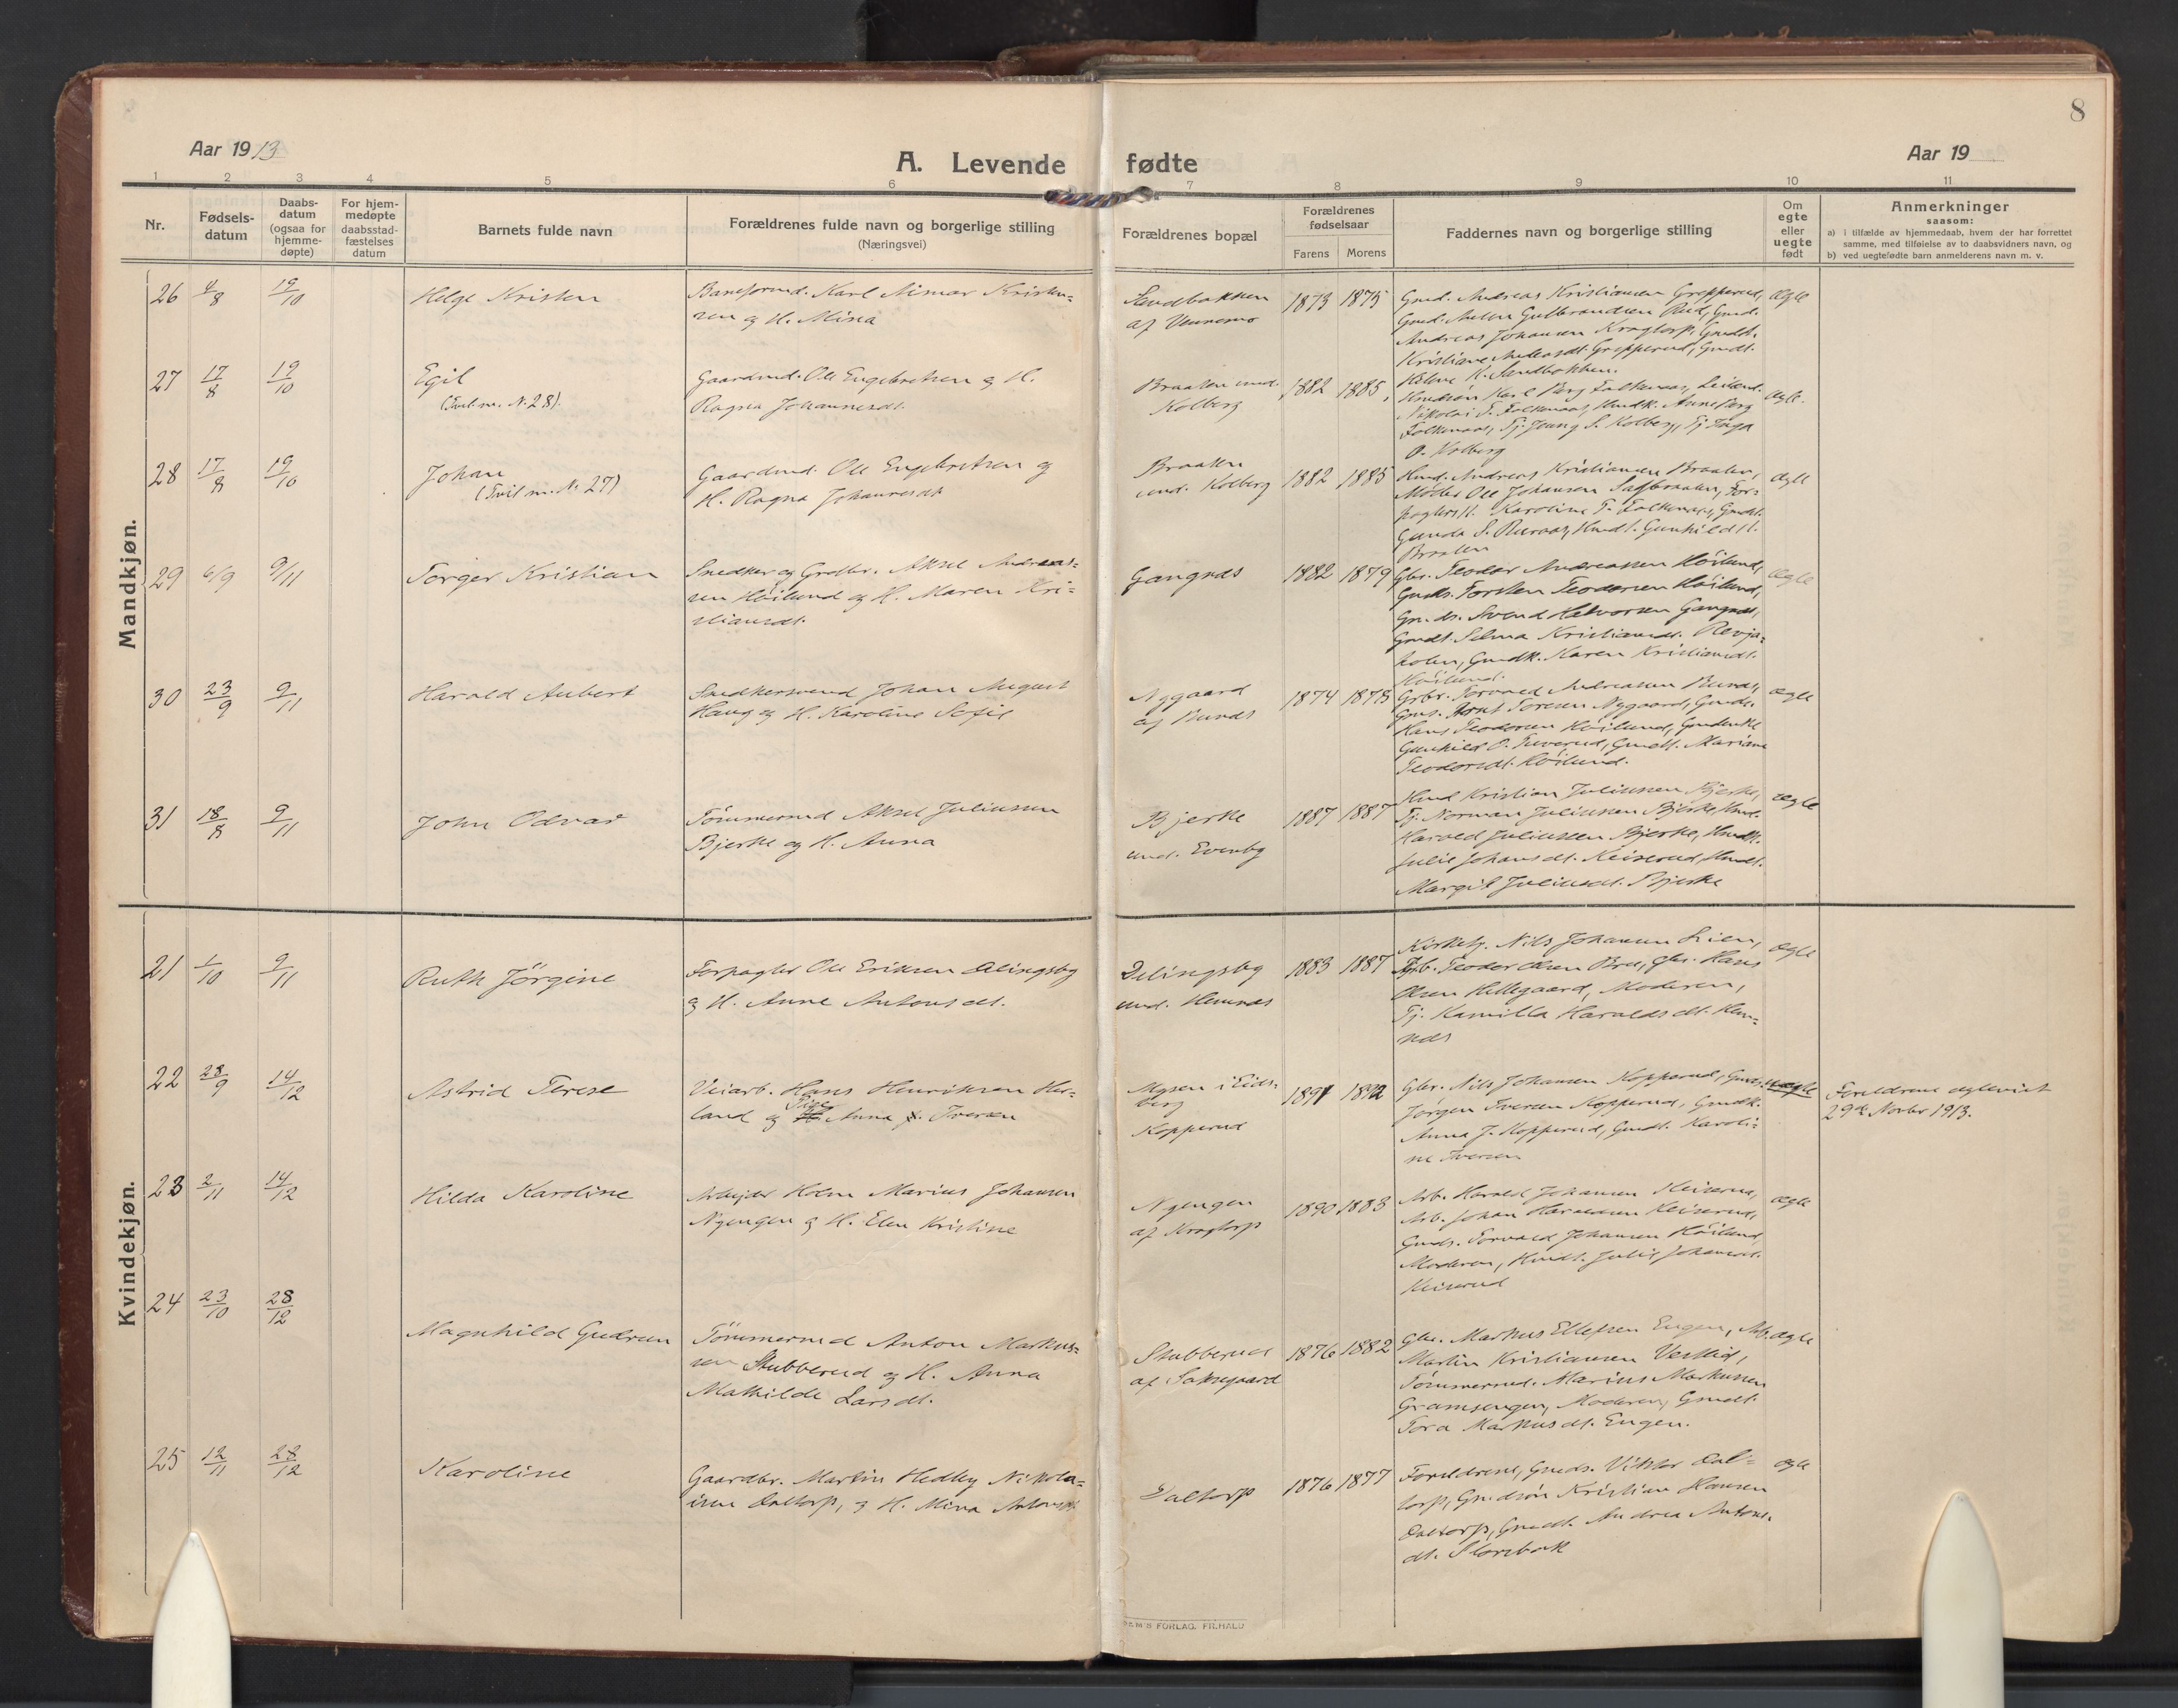 8
Aar 1913
A. Levende fødte
Aar 19
1 2 3 4 5 6 7 8 9 10 11
Nr.
Fødsels-
datum
Daabs-
datum
(ogsaa for
hjemme-
døpte)
For hjem-
medøpte
daabsstad-
fæstelses
datum
Barnets fulde navn
Forældrenes fulde navn og borgerlige stilling
(Næringsvei)
Forældrenes bopæl
Forældrenes
fødselsaar
Farens Morens
Faddernes navn og borgerlige stilling
Om
egte
eller
uegte
født
Anmerkninger
saasom:
a) i tilfælde av hjemmedaab, hvem der har forrettet
samme, med tilføielse av to daabsvidners navn, og
b) ved uegtefødte barn anmelderens navn m. v.
Mandkjøn.
26 4/8 19/10 Helge Kristen
Baneformd. Karl Kristen=
sen og H. Mina
Sandbakken
af Vennemo
1873 1875
Gmd. Andreas Kristiansen Grepperud,
Gmd. Anton Gulbrandsen Rud, Gmd.
Andreas Johansen Kragtorp, Gmdk.
Kristiane Andreasdt. Grepperud, Gmdt.
K. Sandbakken.
ægte
27 17/8 19/10 Egil
(Tvil. m. N. 28).
Gaardmd. Ole Engebretsen og H.
Ragna Johannesdt.
Braaten und.
Kolberg
1882 1885
Karl Berg Falkenaas,
Nikolai T. Falkenaas, Hmdk. Anne Berg
Falkenaas, Tj. S. Kolberg, Tj. Inga
O. Kolberg
ægte.
28 17/8 19/10 Johan
(Tvil. m. N. 27)
Gaardmd. Ole Engebretsen og
H. Ragna Johannesdt.
Braaten
und. Kolberg
1882 1885
Hmd. Andreas Kristiansen Braaten,
Møller Ole Johansen Sagbraaten, For=
pagters H. Karoline T. Falkenaas, Gmdt.
Gunda S. Hmdt. Gunhild H.
Braaten
ægte
29 6/9 9/11 Torger Kristian
Snedker og Grdbr. Aksel Andreas=
sen Høilund og H. Maren Kri=
stiansdt.
Gangnæs
1882 1879
Gbr. Teodor Andreassen Høilund,
Gmds. Torsten Teodorsen Høilund,
Gmds. Svend Halvorsen Gangnæs,
Gmdt. Selma Kristiansdt. Revja=
holen, Gmdk. Karen Kristiansdt.
Høilund.
ægte
30 23/9 9/11 Harald Aubert
Snedkersvend Johan August
Haug og H. Karoline Sofie
Nygaard
af Bunæs
1874 1875
Grbr. Torvald Andreassen Bunæs,
Gms. Arnt Toresen Nygaard, Gmds.
Hans Teodorsen Høilund, Gmdenke
Gunhild O. Tuverud, Gmdt. Mariane
Teodorsdt. Høilund.
ægte
31 18/8 9/11 John Odvar
Tømmermd Aksel Juliussen
Bjerke og H. Anna
Bjerke
und. Evenby
1887 1887
Hmd Kristian Juliussen Bjerke,
Tj. Norman Juliussen Bjerke, Hmd.
Harald Juliussen Bjerke, Hmdk.
Julie Johansdt. Keiserud, Hmdt.
Margit Juliusdt. Bjerke
ægte
Kvindekjøn.
21 1/10 9/11 Ruth Jørgine
Forpagter Ole Eriksen Delingsby
og H. Anne Antonsdt.
Delingsby
und. Hemnæs
1883 1887
Kirketj. Nils Johansen Lien,
Grb. Teodor Olsen Gbr. Hans
Olsen Hellegaard, Moderen,
Tj. Kamilla Haraldsdt. Hem=
næs
ægte
22 28/9 14/12 Astrid Terese
Veiarb. Hans Henriksen Hu=
land og Pige Anna Iversen
Mysen i Eids=
berg
Kopperud
1891 1892
Gbr. Nils Johansen Kopperud, Gmds.
Jørgen Iversen Kopperud, Gmdk.
Anna J. Kopperud, Gmdt. Karoli=
ne Iversen
uægte
Foreldrene egteviet
29de Novbr 1913.
23 2/11 14/12 Hilda Karoline
Arbejder Holm Marius Johansen
Nyengen og H. Elen Kristine
Nyengen
af Kragtorp
1890 1883
Arb. Harald Johansen Keiserud,
Arb. Johan Haraldsen Keiserud,
Gmds. Torvald Johansen Høilund,
Moderen, Hmdt. Julie Johansdt.
Keiserud
ægte
24 23/10 28/12 Magnhild Gudrun
Tømmermd Anton Markus=
sen Stubberud og H. Anna
Mathilde Larsdt.
Stubberud
af Saksegaard
1876 1882
Gbr. Markus Ellefsen Engen, Arb.
Martin Kristiansen Vestlid,
Tømmermd. Marius Markussen
Gramsengen, Moderen, Gmdt.
Tora Markusdt. Engen.
ægte
25 12/11 28/12 Karoline
Gaardbr. Martin Hedley Nikola=
isen Daltorp, og H. Mina Antonsdt
Daltorp
1876 1877
Foreldrene, Gmds. Viktor Dal=
torp, Gmdsøn Kristian Hansen
Daltorp, Gmdt. Andrea Antons=
dt. Storebak
ægte
DAM'S FORLAG. FR.HALD